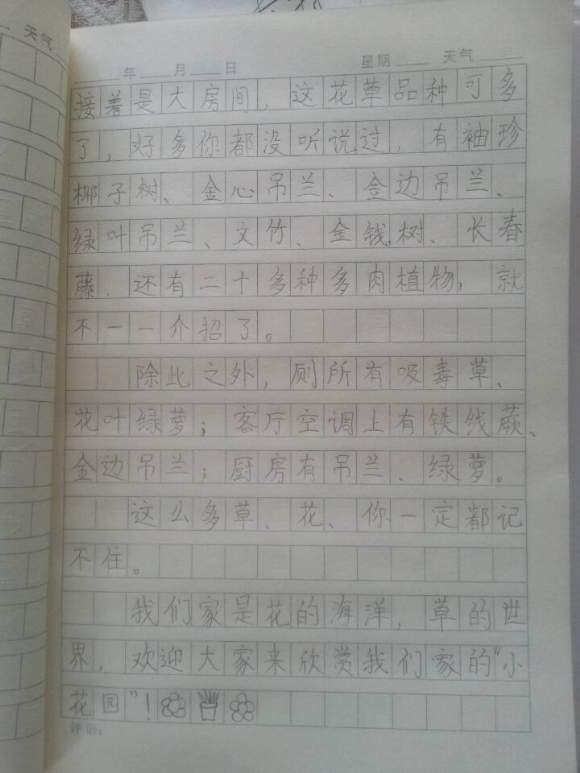 天气
年 月 日 星期 天气
接着是大房间，这花草品种可多
了，好多你都没听说过，有袖珍
椰子树、金心吊兰、金边吊兰、
绿叶吊兰、文竹、金钱树、长春
藤．还有二十多种多肉植物，就
不一一介招了。
除此之外，厕所有吸毒草、
花叶绿萝；客厅空调上有铁线蕨、
金边吊兰；厨房有吊兰、绿萝。
这么多草、花、你一定都记
不住。
我们家是花的海洋，草的世
界，欢迎大家来欣赏我们家的“小
花园”！